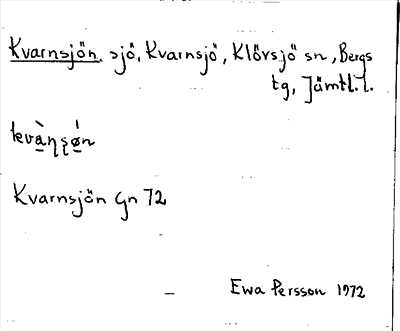 Kvarnsjön, sjö, Kvarnsjö, Klövsjö sn, Bergs
tg, Jämtl. l.
Kvarnsjön Gn 72
Ewa Persson 1972